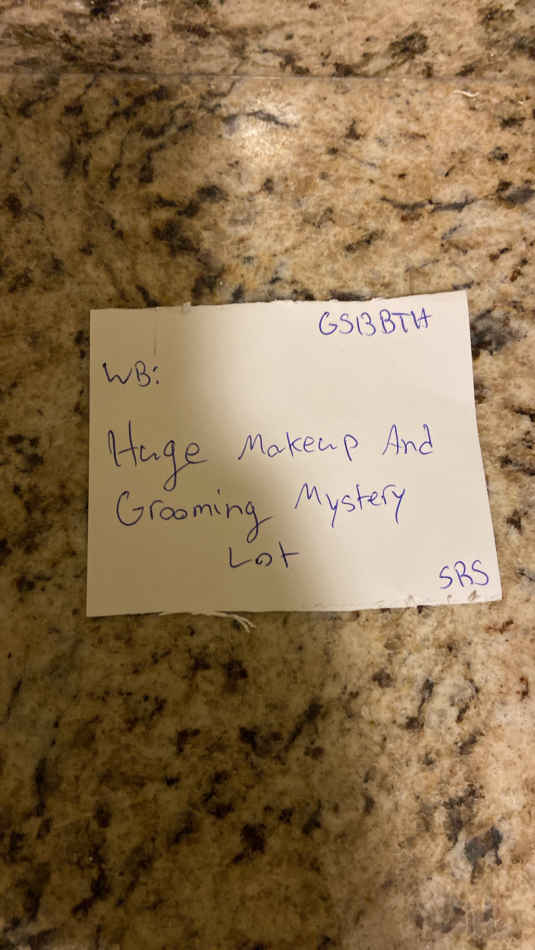 GS13BTH
WB:
Huge Makeup And
Grooming Mystery
Lot
SRS